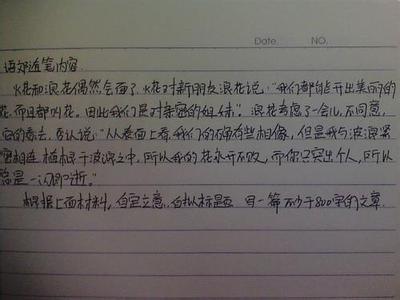 Date. NO.
语郊近笔内容
火花和浪花偶然会面了,火花对新朋友浪花说:“我们都能开出美丽的
花,而且都叫花。因此我们是对亲密的姐妹”。浪花考虑了一会儿,不同意
的看法,为认说:“从表面上看,我们的确有些相像,但是我与波浪紧
密相连,植根于波浪之中,所以我的花永开不败,而你只突出个人,所以
总是一闪即逝。”
根据上面材料,自定立意,自拟标题,写一篇不少于800字的文章.